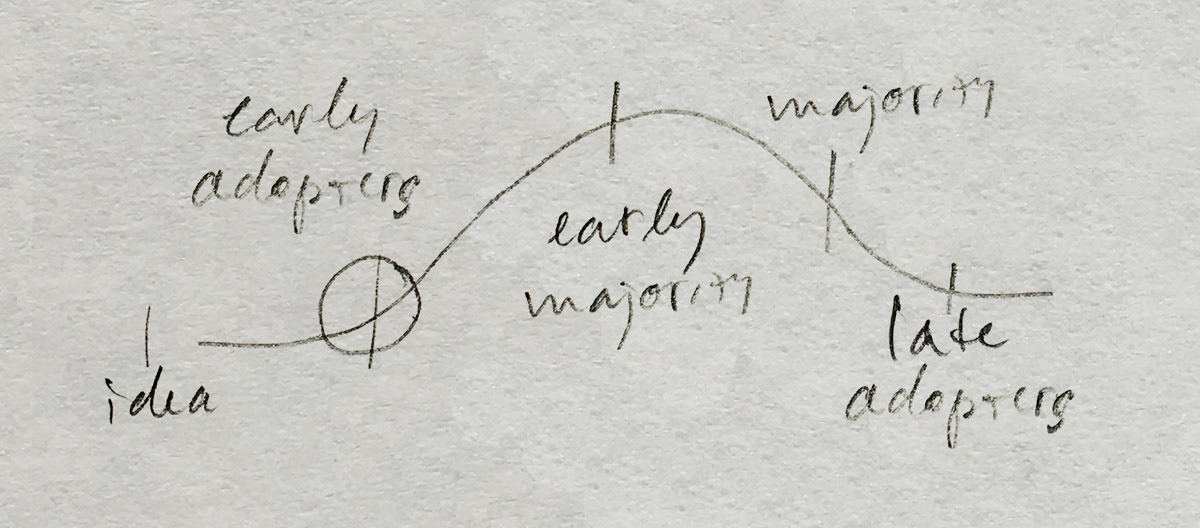 early
adopters
majority
early
majority
idea
late
adopters